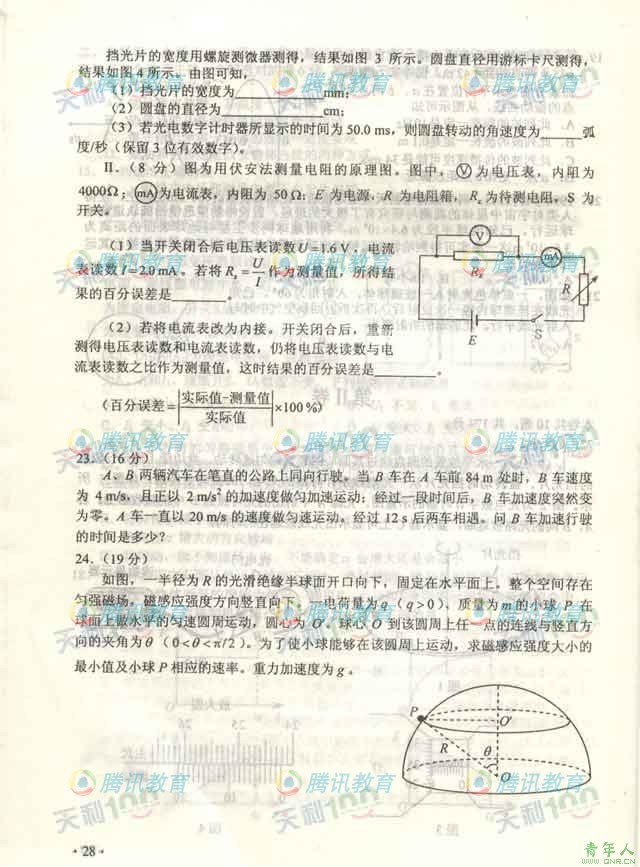 挡光片的宽度用螺旋测微器测得，结果如图 3 所示。圆盘直径用游标卡尺测得，
结果如图 4 所示。由图可知，
（1）挡光片的宽度为____________mm；
（2）圆盘的直径为____________cm；
（3）若光电数字计时器所显示的时间为 50.0 ms，则圆盘转动的角速度为______弧
度/秒（保留 3 位有效数字）。
II.（8 分）图为用伏安法测量电阻的原理图。图中，Ⓥ为电压表，内阻为
4000Ω；(mA)为电流表，内阻为 50 Ω；E 为电源，R 为电阻箱，Rx为待测电阻，S 为
开关。
（1）当开关闭合后电压表读数U=1.6 V，电流
表读数 I=2.0 mA。若将 Rx = U/I 作为测量值，所得结
果的百分误差是________。
V
mA
Rx
R
E
S
（2）若将电流表改为内接。开关闭合后，重新
测得电压表读数和电流表读数，仍将电压表读数与电
流表读数之比作为测量值，这时结果的百分误差是________。
（百分误差=|实际值-测量值/实际值|×100 %）
23.（16 分）
A、B 两辆汽车在笔直的公路上同向行驶。当 B 车在 A 车前 84 m 处时，B 车速度
为 4 m/s，且正以 2 m/s² 的加速度做匀加速运动；经过一段时间后，B 车加速度突然变
为零。A 车一直以 20 m/s 的速度做匀速运动。经过 12 s 后两车相遇。问 B 车加速行驶
的时间是多少？
24.（19 分）
如图，一半径为 R 的光滑绝缘半球面开口向下，固定在水平面上。整个空间存在
匀强磁场，磁感应强度方向竖直向下。一电荷量为 q（q＞0）、质量为 m 的小球 P 在
球面上做水平的匀速圆周运动，圆心为 O′。球心 O 到该圆周上任一点的连线与竖直方
向的夹角为 θ（0＜θ＜π/2）。为了使小球能够在该圆周上运动，求磁感应强度大小的
最小值及小球 P 相应的速率。重力加速度为 g。
P
O′
R
θ
O
·28·
腾讯教育
天利100
青年人
WWW.QNR.CN